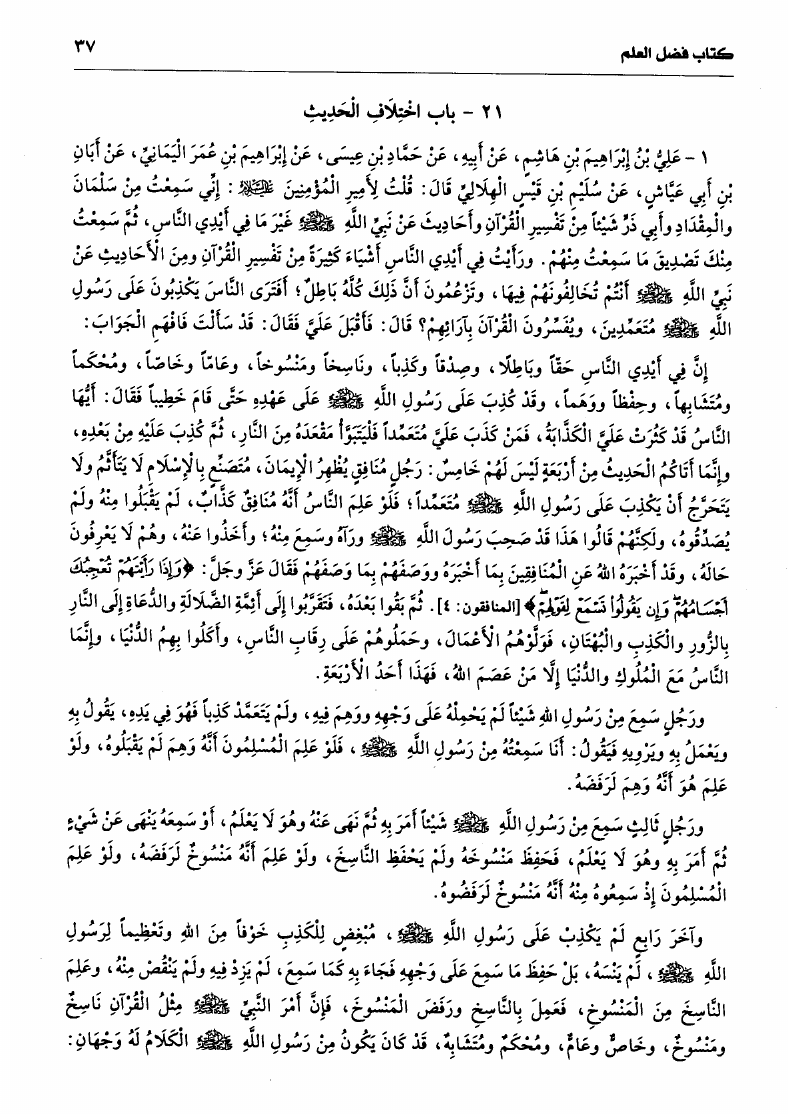 كتاب فضل العلم ٣٧
٢١ - باب اخْتِلَافِ الْحَدِيثِ
١ - عَلِيُّ بْنُ إِبْرَاهِيمَ بْنِ هَاشِمٍ، عَنْ أَبِيهِ، عَنْ حَمَّادِ بْنِ عِيسَى، عَنْ إِبْرَاهِيمَ بْنِ عُمَرَ الْيَمَانِيِّ، عَنْ أَبَانِ
بْنِ أَبِي عَيَّاشٍ، عَنْ سُلَيْمِ بْنِ قَيْسٍ الْهِلَالِيِّ قَالَ: قُلْتُ لِأَمِيرِ الْمُؤْمِنِينَ عليه السلام: إِنِّي سَمِعْتُ مِنْ سَلْمَانَ
والْمِقْدَادِ وأَبِي ذَرٍّ شَيْئاً مِنْ تَفْسِيرِ الْقُرْآنِ وأَحَادِيثَ عَنْ نَبِيِّ اللَّهِ ﷺ غَيْرَ مَا فِي أَيْدِي النَّاسِ، ثُمَّ سَمِعْتُ
مِنْكَ تَصْدِيقَ مَا سَمِعْتُ مِنْهُمْ. ورَأَيْتُ فِي أَيْدِي النَّاسِ أَشْيَاءَ كَثِيرَةً مِنْ تَفْسِيرِ الْقُرْآنِ ومِنَ الْأَحَادِيثِ عَنْ
نَبِيِّ اللَّهِ ﷺ أَنْتُمْ تُخَالِفُونَهُمْ فِيهَا، وتَزْعُمُونَ أَنَّ ذَلِكَ كُلَّهُ بَاطِلٌ؛ أَفَتَرَى النَّاسَ يَكْذِبُونَ عَلَى رَسُولِ
اللَّهِ ﷺ مُتَعَمِّدِينَ، ويُفَسِّرُونَ الْقُرْآنَ بِآرَائِهِمْ؟ قَالَ: فَأَقْبَلَ عَلَيَّ فَقَالَ: قَدْ سَأَلْتَ فَافْهَمِ الْجَوَابَ:
إِنَّ فِي أَيْدِي النَّاسِ حَقّاً وبَاطِلًا، وصِدْقاً وكَذِباً، ونَاسِخاً ومَنْسُوخاً، وعَامّاً وخَاصّاً، ومُحْكَماً
ومُتَشَابِهاً، وحِفْظاً ووَهَماً، وقَدْ كُذِبَ عَلَى رَسُولِ اللَّهِ ﷺ عَلَى عَهْدِهِ حَتَّى قَامَ خَطِيباً فَقَالَ: أَيُّهَا
النَّاسُ قَدْ كَثُرَتْ عَلَيَّ الْكَذَّابَةُ، فَمَنْ كَذَبَ عَلَيَّ مُتَعَمِّداً فَلْيَتَبَوَّأْ مَقْعَدَهُ مِنَ النَّارِ، ثُمَّ كُذِبَ عَلَيْهِ مِنْ بَعْدِهِ،
وإِنَّمَا أَتَاكُمُ الْحَدِيثُ مِنْ أَرْبَعَةٍ لَيْسَ لَهُمْ خَامِسٌ: رَجُلٍ مُنَافِقٍ يُظْهِرُ الْإِيمَانَ، مُتَصَنِّعٍ بِالْإِسْلَامِ لَا يَتَأَثَّمُ ولَا
يَتَحَرَّجُ أَنْ يَكْذِبَ عَلَى رَسُولِ اللَّهِ ﷺ مُتَعَمِّداً؛ فَلَوْ عَلِمَ النَّاسُ أَنَّهُ مُنَافِقٌ كَذَّابٌ، لَمْ يَقْبَلُوا مِنْهُ ولَمْ
يُصَدِّقُوهُ، ولَكِنَّهُمْ قَالُوا هَذَا قَدْ صَحِبَ رَسُولَ اللَّهِ ﷺ ورَآهُ وسَمِعَ مِنْهُ؛ وأَخَذُوا عَنْهُ، وهُمْ لَا يَعْرِفُونَ
حَالَهُ، وقَدْ أَخْبَرَهُ اللهُ عَنِ الْمُنَافِقِينَ بِمَا أَخْبَرَهُ ووَصَفَهُمْ بِمَا وَصَفَهُمْ فَقَالَ عَزَّ وجَلَّ: ﴿وَإِذَا رَأَيْتَهُمْ تُعْجِبُكَ
أَجْسَامُهُمْ وَإِن يَقُولُوا تَسْمَعْ لِقَوْلِهِمْ﴾ [المنافقون: ٤]. ثُمَّ بَقُوا بَعْدَهُ، فَتَقَرَّبُوا إِلَى أَئِمَّةِ الضَّلَالَةِ والدُّعَاةِ إِلَى النَّارِ
بِالزُّورِ والْكَذِبِ والْبُهْتَانِ، فَوَلَّوْهُمُ الْأَعْمَالَ، وحَمَلُوهُمْ عَلَى رِقَابِ النَّاسِ، وأَكَلُوا بِهِمُ الدُّنْيَا، وإِنَّمَا
النَّاسُ مَعَ الْمُلُوكِ والدُّنْيَا إِلَّا مَنْ عَصَمَ اللهُ، فَهَذَا أَحَدُ الْأَرْبَعَةِ.
ورَجُلٍ سَمِعَ مِنْ رَسُولِ اللهِ شَيْئاً لَمْ يَحْمِلْهُ عَلَى وَجْهِهِ ووَهِمَ فِيهِ، ولَمْ يَتَعَمَّدْ كَذِباً فَهُوَ فِي يَدِهِ، يَقُولُ بِهِ
ويَعْمَلُ بِهِ ويَرْوِيهِ فَيَقُولُ: أَنَا سَمِعْتُهُ مِنْ رَسُولِ اللَّهِ ﷺ، فَلَوْ عَلِمَ الْمُسْلِمُونَ أَنَّهُ وَهِمَ لَمْ يَقْبَلُوهُ، ولَوْ
عَلِمَ هُوَ أَنَّهُ وَهِمَ لَرَفَضَهُ.
ورَجُلٍ ثَالِثٍ سَمِعَ مِنْ رَسُولِ اللَّهِ ﷺ شَيْئاً أَمَرَ بِهِ ثُمَّ نَهَى عَنْهُ وهُوَ لَا يَعْلَمُ، أَوْ سَمِعَهُ يَنْهَى عَنْ شَيْءٍ
ثُمَّ أَمَرَ بِهِ وهُوَ لَا يَعْلَمُ، فَحَفِظَ مَنْسُوخَهُ ولَمْ يَحْفَظِ النَّاسِخَ، ولَوْ عَلِمَ أَنَّهُ مَنْسُوخٌ لَرَفَضَهُ، ولَوْ عَلِمَ
الْمُسْلِمُونَ إِذْ سَمِعُوهُ مِنْهُ أَنَّهُ مَنْسُوخٌ لَرَفَضُوهُ.
وآخَرَ رَابِعٍ لَمْ يَكْذِبْ عَلَى رَسُولِ اللَّهِ ﷺ، مُبْغِضٍ لِلْكَذِبِ خَوْفاً مِنَ اللهِ وتَعْظِيماً لِرَسُولِ
اللَّهِ ﷺ، لَمْ يَنْسَهُ، بَلْ حَفِظَ مَا سَمِعَ عَلَى وَجْهِهِ فَجَاءَ بِهِ كَمَا سَمِعَ، لَمْ يَزِدْ فِيهِ ولَمْ يَنْقُصْ مِنْهُ، وعَلِمَ
النَّاسِخَ مِنَ الْمَنْسُوخِ، فَعَمِلَ بِالنَّاسِخِ ورَفَضَ الْمَنْسُوخَ، فَإِنَّ أَمْرَ النَّبِيِّ ﷺ مِثْلُ الْقُرْآنِ نَاسِخٌ
ومَنْسُوخٌ، وخَاصٌّ وعَامٌّ، ومُحْكَمٌ ومُتَشَابِهٌ، قَدْ كَانَ يَكُونُ مِنْ رَسُولِ اللَّهِ ﷺ الْكَلَامُ لَهُ وَجْهَانِ: